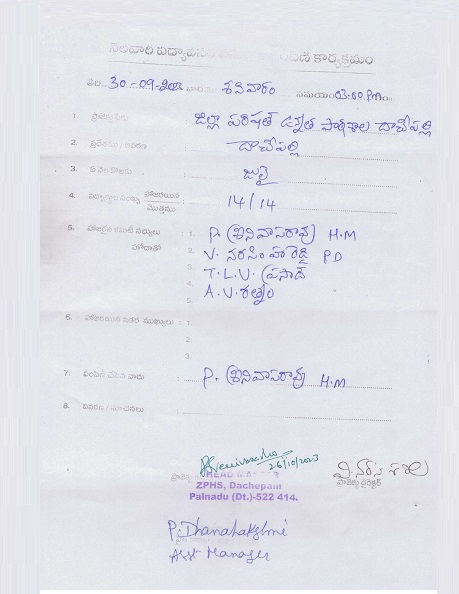 నెలవారీ విద్యా కార్యక్రమం
తేది. 30-09-2023 వారం శనివారం సమయం 03:00 Pm
1. ప్రాజెక్టు పేరు : జిల్లా పరిషత్ ఉన్నత పాఠశాల దాచేపల్లి
2. ప్రదేశము : దాచేపల్లి
3. ఏ నెల కొరకు : జులై
4. విద్యార్థుల సంఖ్య హాజరయిన / మొత్తము : 14/14
5. హాజరైన కమిటీ సభ్యులు : 1. P. శ్రీనివాసరావు H.M
హోదాతో 2. V. నరసింహారెడ్డి PD
3. T.L.V. ప్రసాద్
4. A.V. రత్నం
6. హాజరయిన ఇతర ముఖ్యులు : 1.
2.
3.
7. పంపిణి చేసిన వారు : P. శ్రీనివాసరావు H.M
8. వివరణ / సూచనలు :
26/10/2023
ప్రాజెక్టు డైరెక్టర్
HEAD
ZPHS, Dachepalli
Palnadu (Dt.)-522 414.
P. Dhanalakshmi
Asst Manager